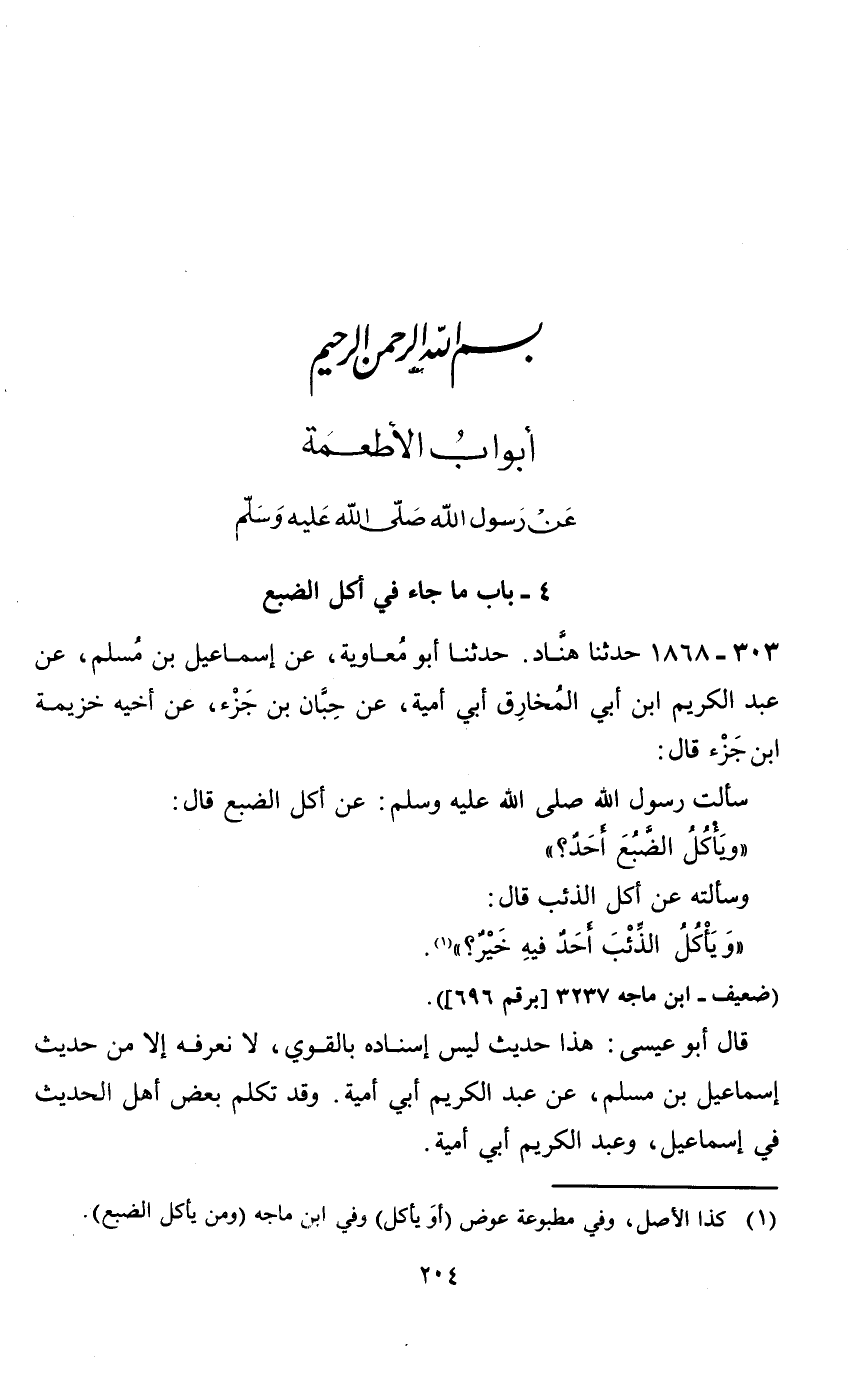 بسم الله الرحمن الرحيم
أبوابُ الأطعمَة
عَن رَسول الله صَلّى الله عَليه وَسَلّم
٤ ـ باب ما جاء في أكل الضبع
٣٠٣ ـ ١٨٦٨ حدثنا هنَّاد. حدثنا أبو مُعاوية، عن إسماعيل بن مُسلم، عن
عبد الكريم ابن أبي المُخارِق أبي أمية، عن حِبَّان بن جَزْء، عن أخيه خزيمة
ابن جَزْء قال:
سألت رسول الله صلى الله عليه وسلم: عن أكل الضبع قال:
«ويَأْكُلُ الضَّبُعَ أَحَدٌ؟»
وسألته عن أكل الذئب قال:
«وَيَأْكُلُ الذِّئْبَ أَحَدٌ فيهِ خَيْرٌ؟»(١).
(ضعيف ـ ابن ماجه ٣٢٣٧ [برقم ٦٩٦]).
قال أبو عيسى: هذا حديث ليس إسناده بالقوي، لا نعرفه إلا من حديث
إسماعيل بن مسلم، عن عبد الكريم أبي أمية. وقد تكلم بعض أهل الحديث
في إسماعيل، وعبد الكريم أبي أمية.
(١) كذا الأصل، وفي مطبوعة عوض (أوَ يأكل) وفي ابن ماجه (ومن يأكل الضبع).
٢٠٤